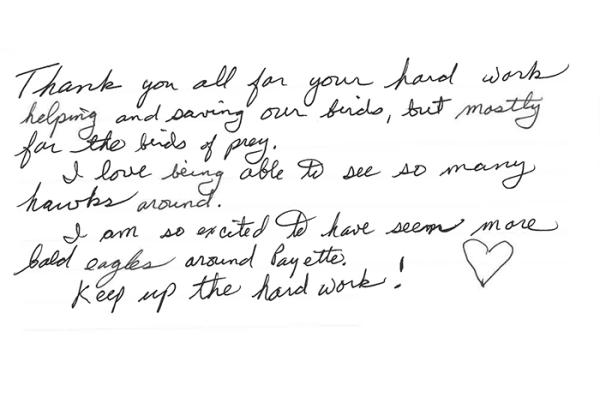 Thank you all for your hard work
helping and saving our birds, but mostly
for the birds of prey.
I love being able to see so many
hawks around.
I am so excited to have seem more
bald eagles around Payette.
Keep up the hard work!